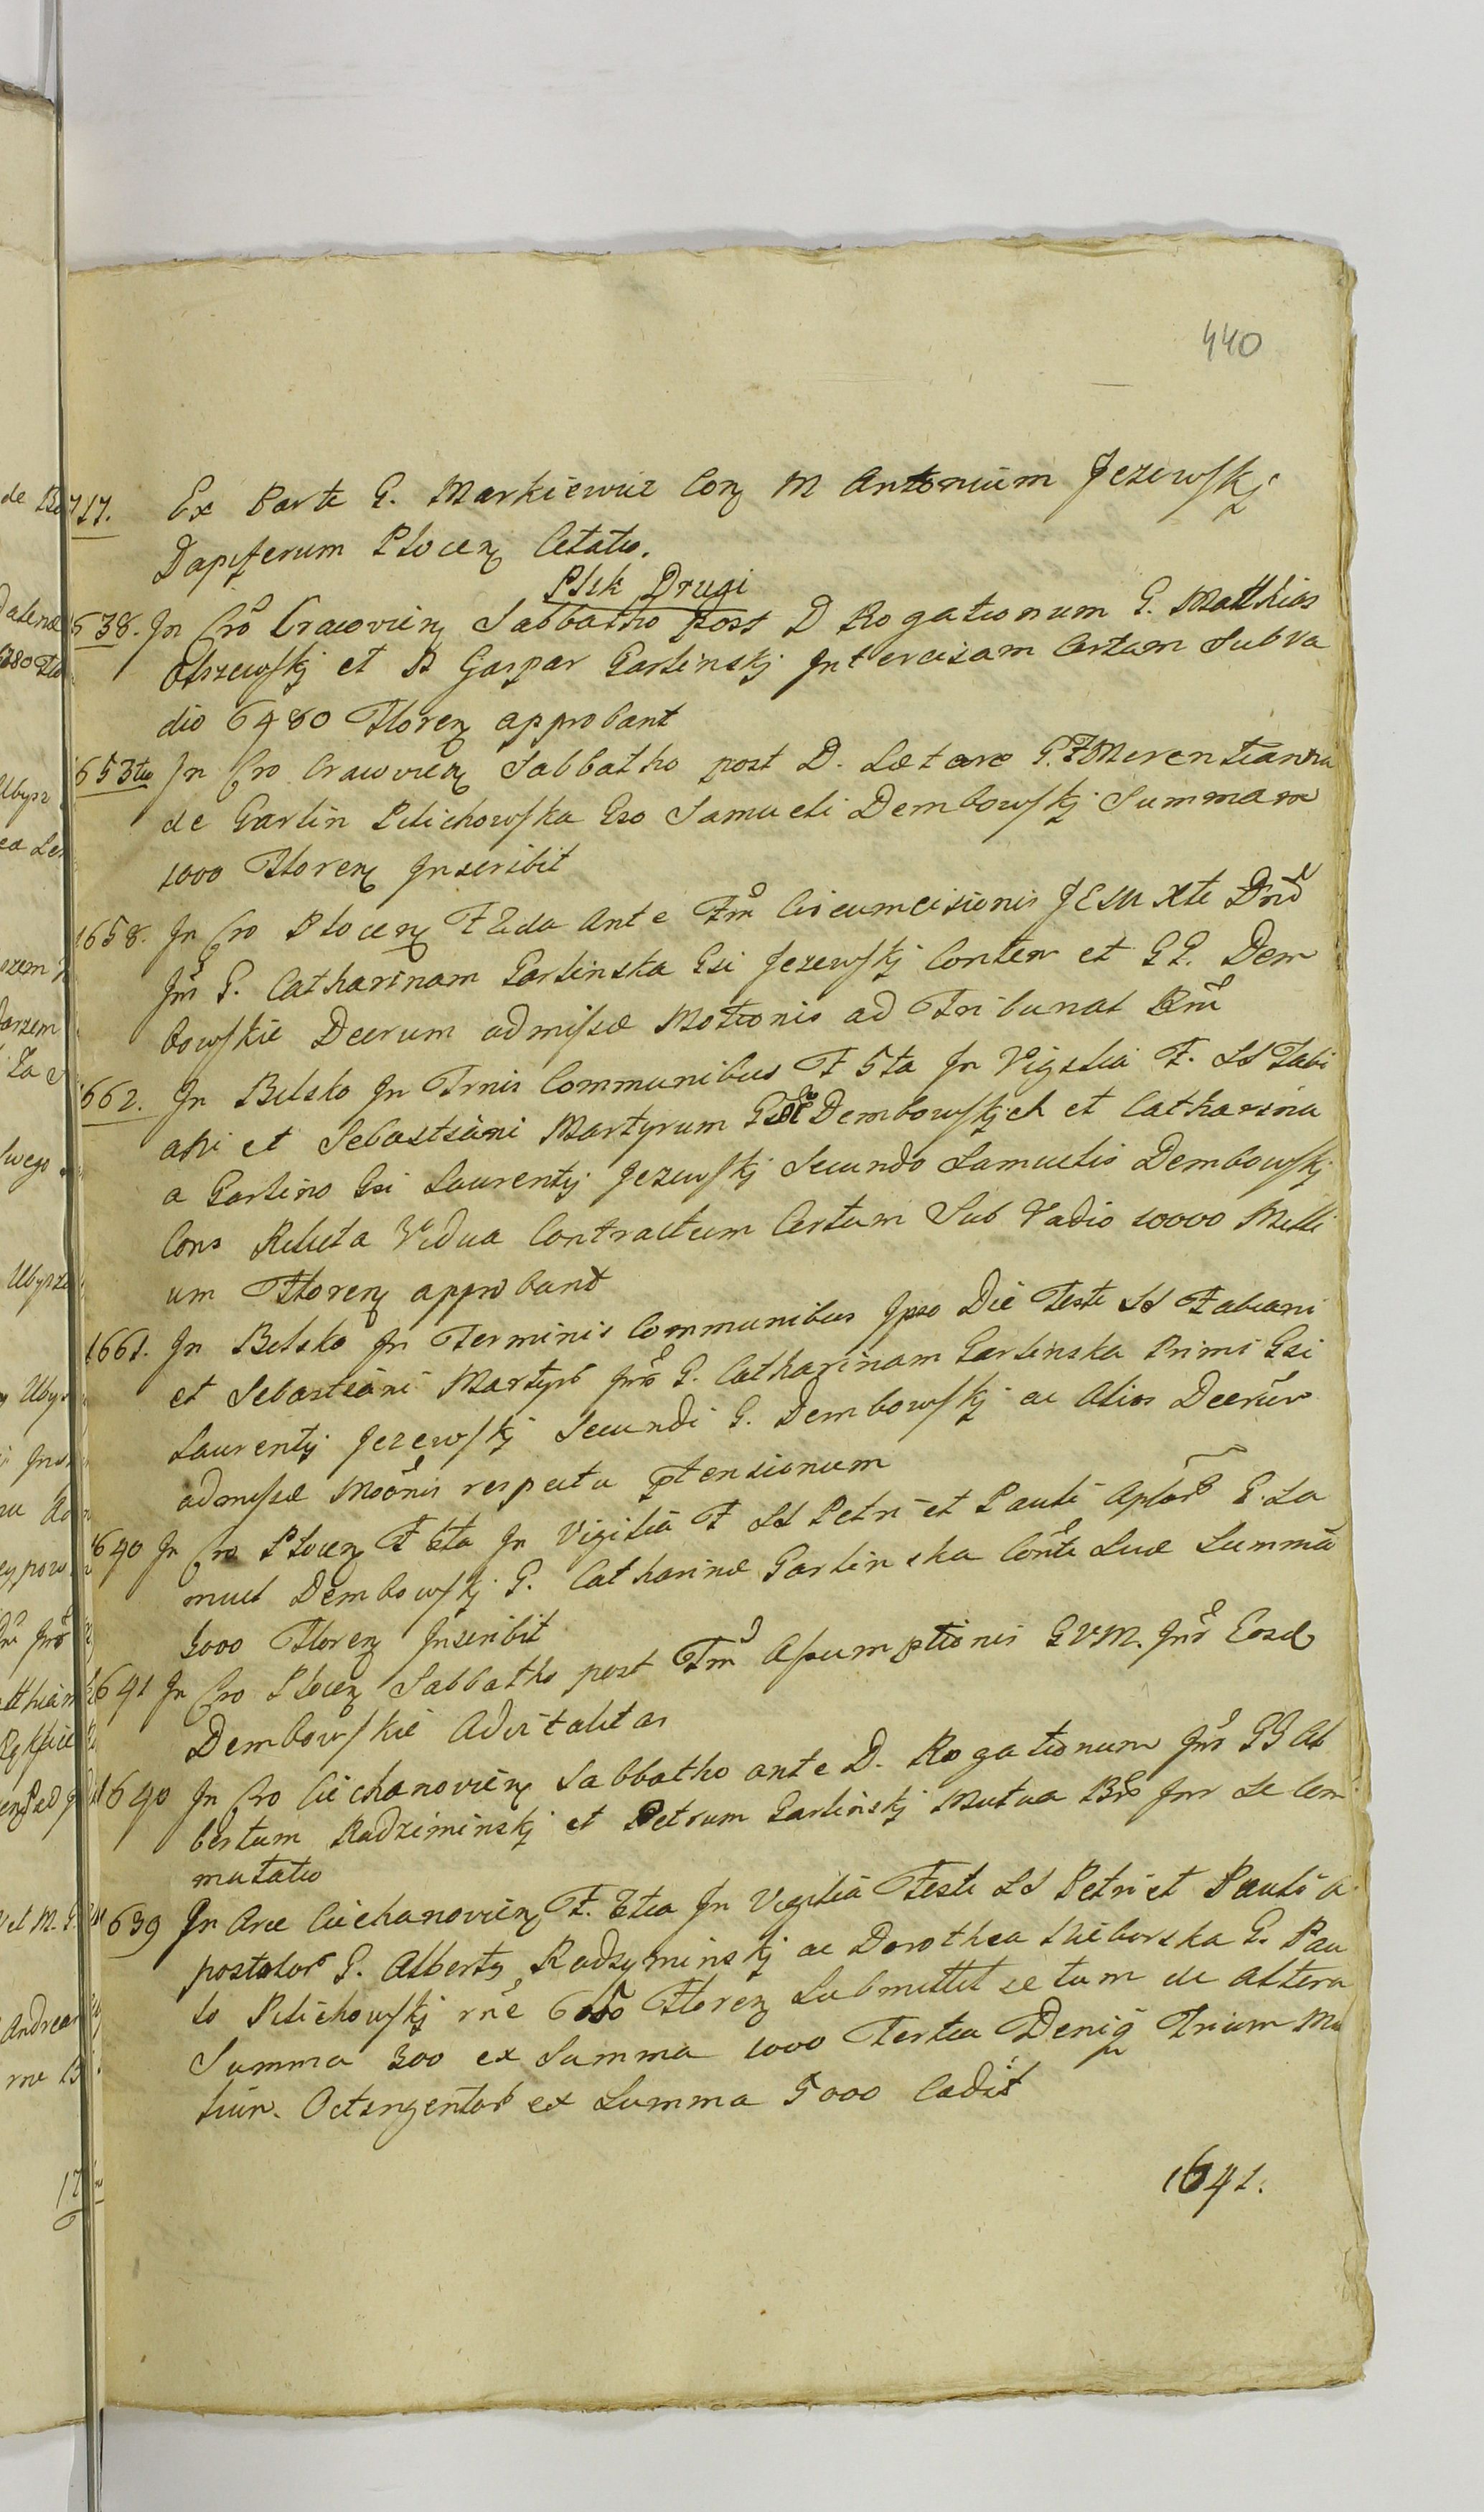 440
717. Ex Parte G. Markiewicz Conz M Antonium Jezewskj
Dapiferum Plocenz Citatio.
Plik Drugi
638. In Cro Cracovienz Sabbatho post D Rogationum G. Matthias
Olszewskj et B Gaspar Garlinskj Intercisam Certam Sub va
dio 6480 Florenz approbant
1653tio In Cro Cracovienz Sabbatho post D. Lætare G. Emerentianna
de Garlin Pilichowska Gso Samueli Dembowskj Summam
1000 Florenz Inscribit
1658. In Cro Plocenz F 2da Ante Fm Circumcisionis JESU Xti Dnō
Inr G. Catharinam Garlinska Gsi Jezewskj Conten et GG. Dem
bowskie Decrum admissæ Motionis ad Tribunal Rni
1662. In Bilsko In Trnis Communibus F 5ta In Vigilia F. SS Fabi
ani et Sebastiani Martyrum Dembowskich et Catharina
a Garlino Gsi Laurentij Jezewskj Secundo Samuelis Dembowskj
Cons Relicta Vidua Contractum Certum Sub Vadio 10000 Milli
um Florenz approbant
1661. In Bilsko In Terminis Communibus Ipso Die Festi SS Fabiani
et Sebastiani Martyrò Inr G. Catharinam Garlinska Primi Gsi
Laurentij Jezewskj Secundi G. Dembowskj ac Alios Decrum
admissæ Mōonis respectu ptensionum
1640 In Cro Plocenz F 6ta In Vigilia F SS Petri et Pauli Aplor G. Sa
muel Dembowskj G. Catharinæ Garlinska Conti Suæ Summā
3000 Florenz Inscribit
1641 In Cro Plocenz Sabbatho post Fm Assumptionis BVM. Inr Eosd
Dembowskie Advitalitas
1640 In Cro Ciechanovienz Sabbatho ante D. Rogationum Inr GG Al
bertum Radziminskj et Petrum Garlinskj Mutua Inr Se Com
mutatio
1639 In Arce Ciechanovienz F. 6ta In Vigilia Festi SS Petri et Pauli A
postolor G. Albertz Radzyminskj ac Dorothea Niborska G. Pau
lo Pilichowskj rne 6000 Florenz Submittit se tum de Altera
Summa 300 ex Summa 1000 Tertia Deniq Trium Mi
lium. Octingentor ex Summa 5000 Cadit
1641.